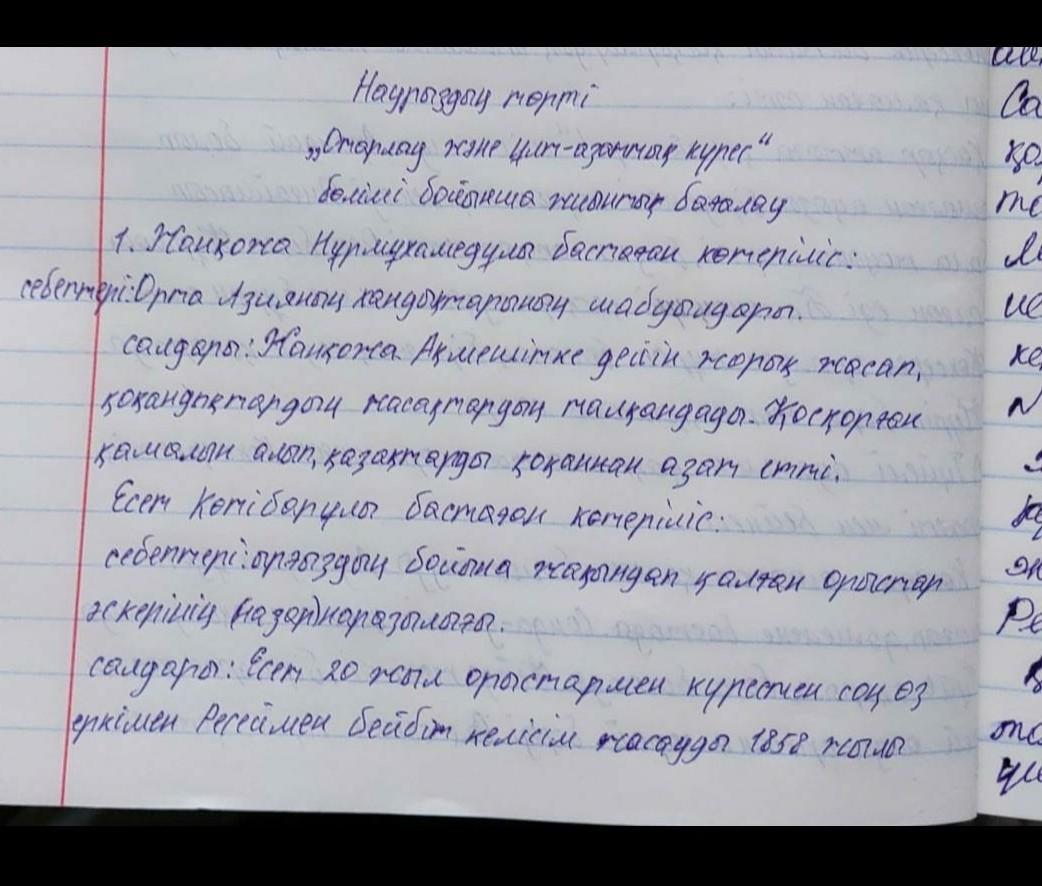 Наурыздың төрті
„Отарлау және ұлт-азаттық күрес“
бөлімі бойынша жиынтық бағалау
1. Жанқожа Нұрмұхамедұлы бастаған көтеріліс:
себептері: Орта Азияның хандықтарының шабуылдары.
салдары: Жанқожа Ақмешітке дейін жорық жасап,
қоқандықтардың жасақтардың талқандады. Қосқорған
қамалын алып, қазақтарды қоқаннан азат етті.
Есет Көтібарұлы бастаған көтеріліс:
себептері: ырғыздың бойына жақындап қалған орыстар
әскерінің (назар) наразылығы.
салдары: Есет 20 жыл орыстармен күрестен соң өз
еркімен Ресеймен бейбіт келісім жасауды 1858 жылы
Са
қо
Ре